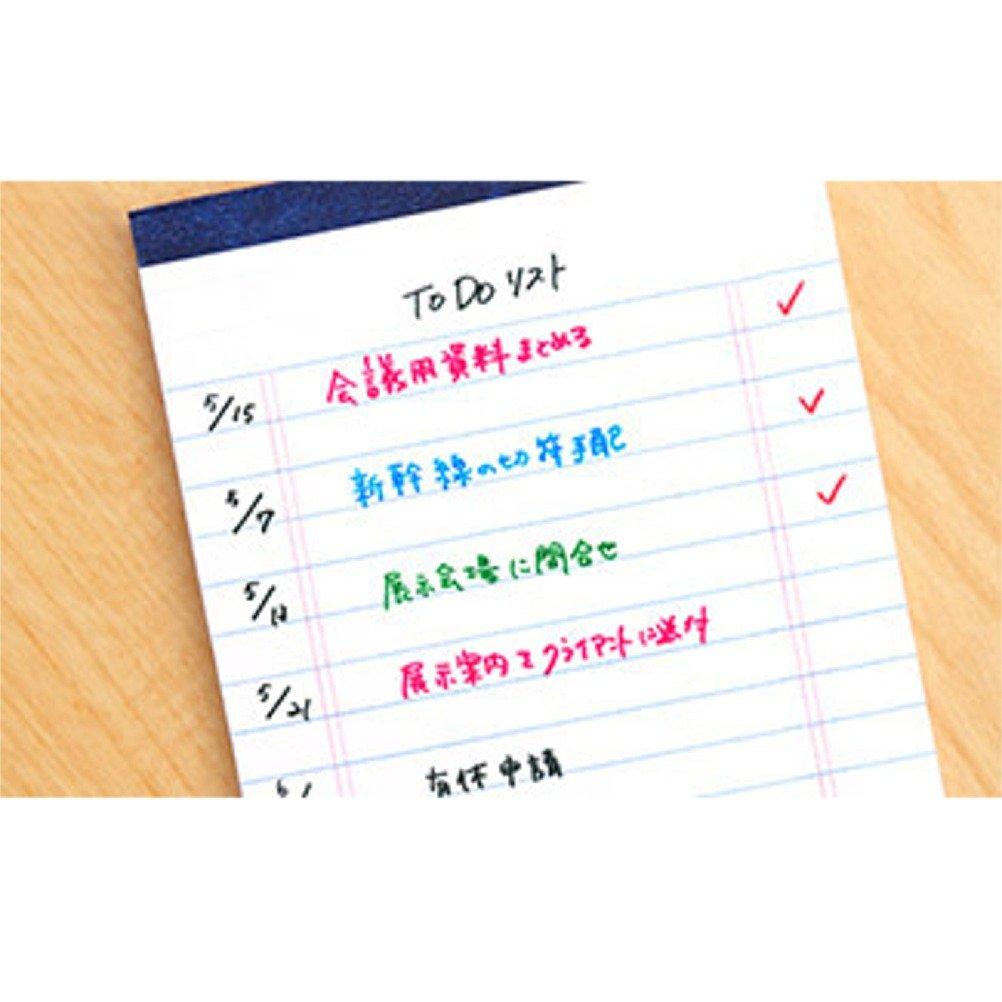 To Do リスト
5/15 会議用資料まとめる ✓
5/7 新幹線の切符手配 ✓
5/18 展示会場に問合せ ✓
5/21 展示案内をクライアントに送付
有休申請